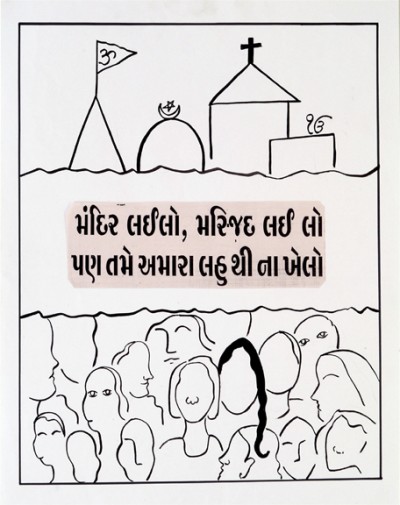 ॐ
ੴ
મંદિર લઈલો, મસ્જિદ લઈ લો
પણ તમે અમારા લહુ થી ના ખેલો